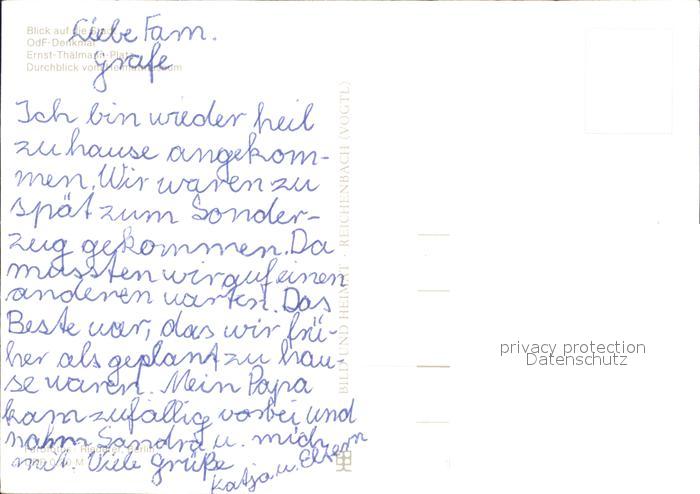 Blick auf die Stadt
OdF-Denkmal
Ernst-Thälmann-Platz
Durchblick vom
Liebe Fam.
Grafe
Ich bin wieder heil
zu hause angekom-
men. Wir waren zu
spät zum Sonder-
zug gekommen. Da
mussten wir auf einen
anderen warten. Das
Beste war, das wir frü-
her als geplant zu hau-
se waren. Mein Papa
kam zufällig vorbei und
nahm Sandra u. mich
mit. Viele Grüße
Katja u. Eltern
BILD UND HEIMAT · REICHENBACH (VOGTL)
privacy protection
Datenschutz